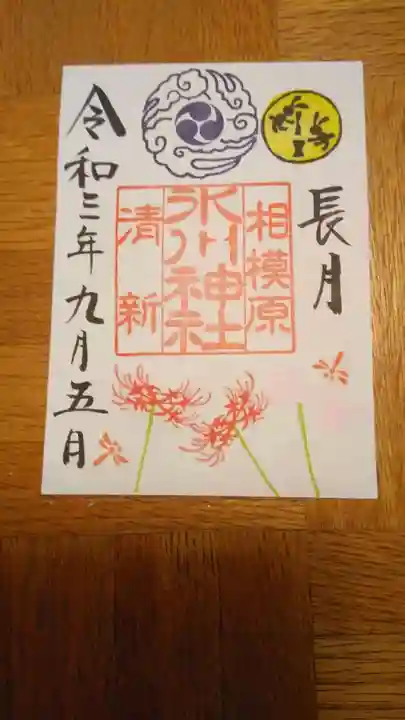 長月
相模原
氷川神社
清新
令和三年九月五日